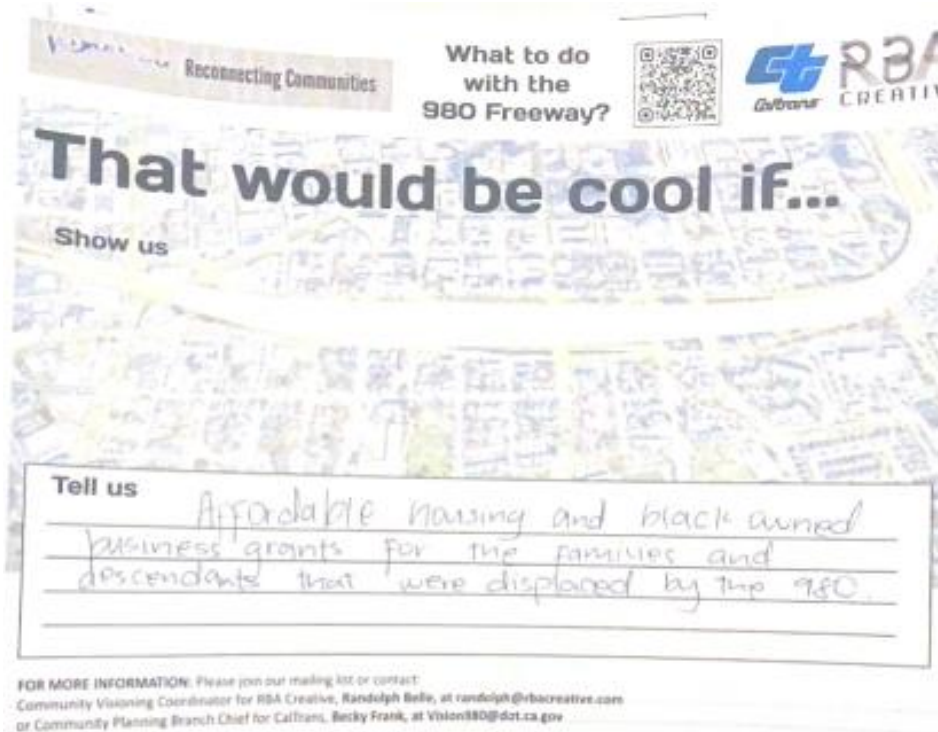 Reconnecting Communities
What to do
with the
980 Freeway?
Caltrans
RBA
CREATIV
That would be cool if...
Show us
Tell us
Affordable housing and black owned
business grants for the families and
descendants that were displaced by the 980.
FOR MORE INFORMATION: Please join our mailing list or contact:
Community Visioning Coordinator for RBA Creative, Randolph Belle, at randolph@rbacreative.com
or Community Planning Branch Chief for CalTrans, Becky Frank, at Vision980@dot.ca.gov